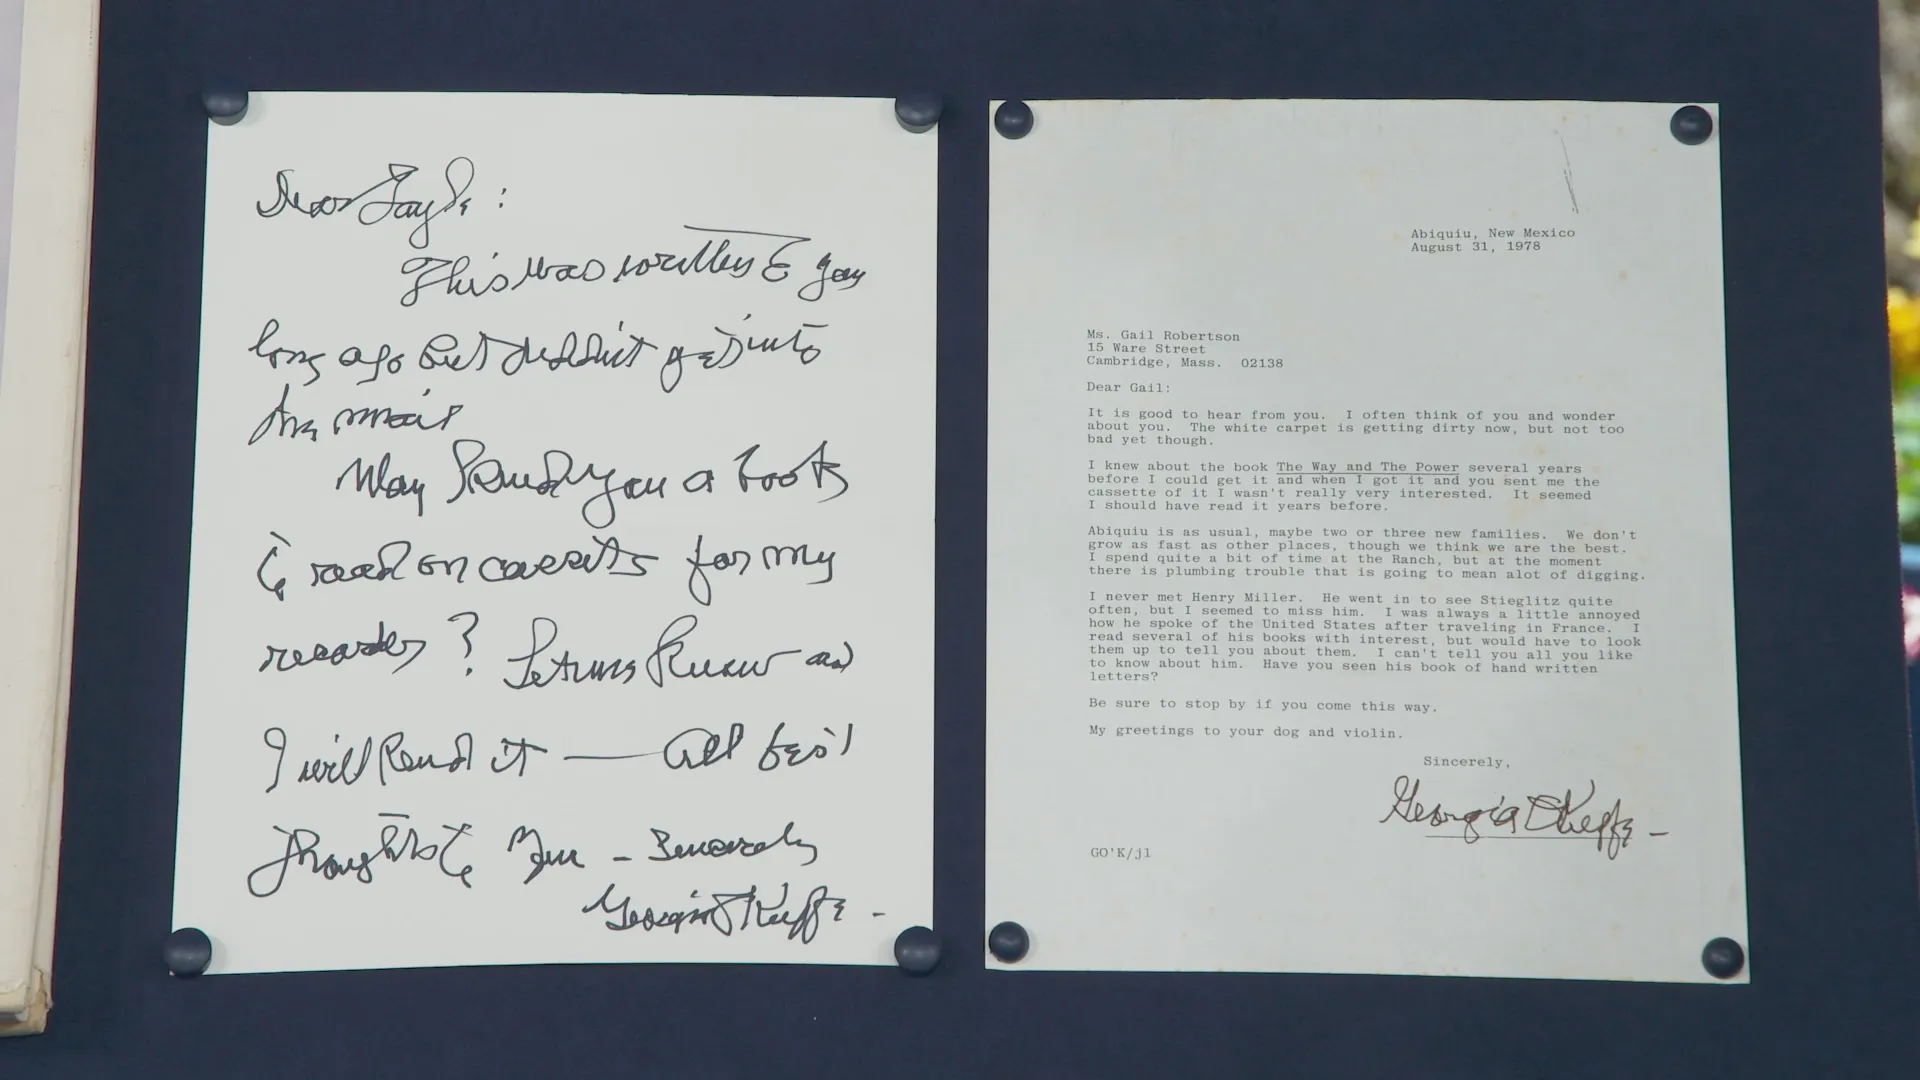 Dear Gayle:
This was written to you
long ago but didn't get into
the mail
May I send you a book
to read on casette for my
recorder? Let me know and
I will send it — All best
thoughts to you – Sincerely
Georgia O'Keeffe –
Abiquiu, New Mexico
August 31, 1978
Ms. Gail Robertson
15 Ware Street
Cambridge, Mass. 02138
Dear Gail:
It is good to hear from you. I often think of you and wonder
about you. The white carpet is getting dirty now, but not too
bad yet though.
I knew about the book The Way and The Power several years
before I could get it and when I got it and you sent me the
cassette of it I wasn't really very interested. It seemed
I should have read it years before.
Abiquiu is as usual, maybe two or three new families. We don't
grow as fast as other places, though we think we are the best.
I spend quite a bit of time at the Ranch, but at the moment
there is plumbing trouble that is going to mean alot of digging.
I never met Henry Miller. He went in to see Stieglitz quite
often, but I seemed to miss him. I was always a little annoyed
how he spoke of the United States after traveling in France. I
read several of his books with interest, but would have to look
them up to tell you about them. I can't tell you all you like
to know about him. Have you seen his book of hand written
letters?
Be sure to stop by if you come this way.
My greetings to your dog and violin.
Sincerely,
Georgia O'Keeffe –
GO'K/jl